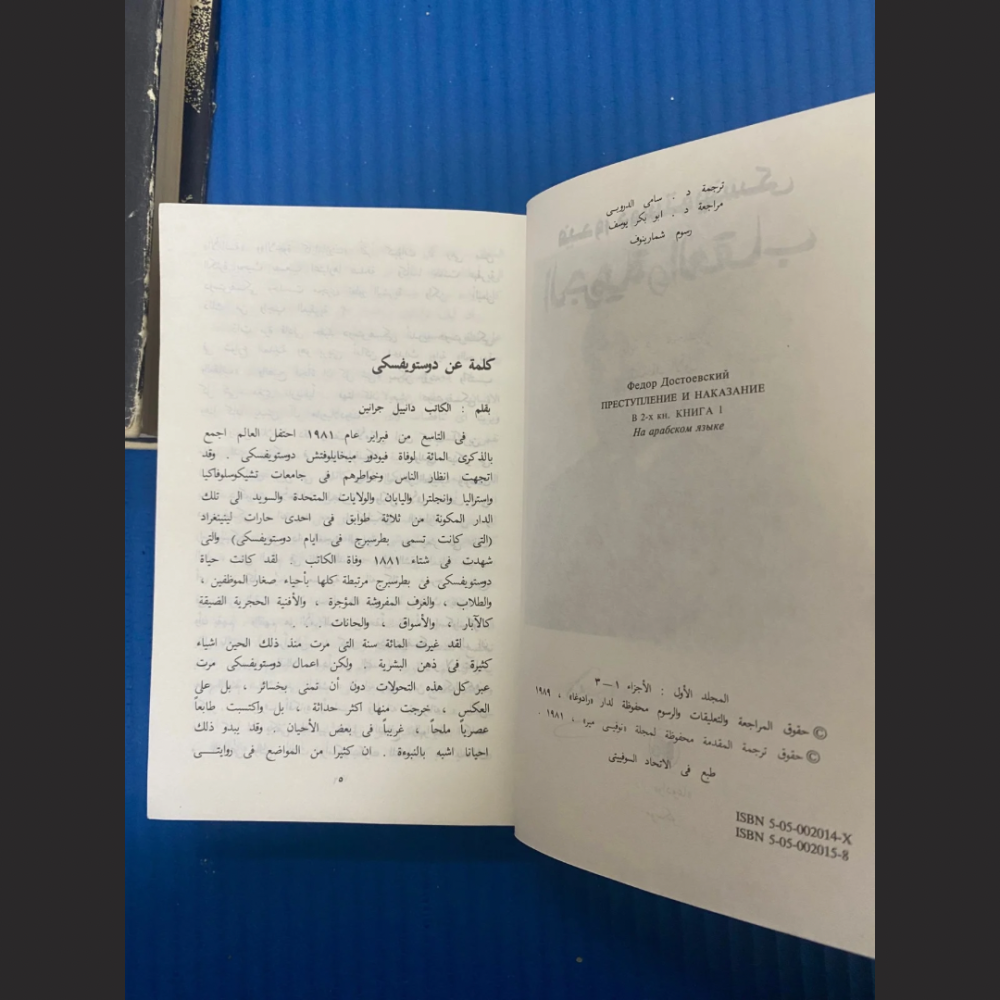 ترجمة د . سامى الدروبى
مراجعة د . ابو بكر يوسف
رسوم شمارينوف
Федор Достоевский
ПРЕСТУПЛЕНИЕ И НАКАЗАНИЕ
В 2-х кн. КНИГА 1
На арабском языке
المجلد الأول : الأجزاء ١—٣
© حقوق المراجعة والتعليقات والرسوم محفوظة لدار «رادوغا» ، ١٩٨٩
© حقوق ترجمة المقدمة محفوظة لمجلة «نوفى مير» ، ١٩٨١ .
طبع فى الاتحاد السوفييتى
ISBN 5-05-002014-X
ISBN 5-05-002015-8
كلمة عن دوستويفسكى
بقلم : الكاتب دانييل جرانين
فى التاسع من فبراير عام ١٩٨١ احتفل العالم اجمع
بالذكرى المائة لوفاة فيودور ميخايلوفتش دوستويفسكى . وقد
اتجهت انظار الناس وخواطرهم فى جامعات تشيكوسلوفاكيا
واستراليا وانجلترا واليابان والولايات المتحدة والسويد الى تلك
الدار المكونة من ثلاثة طوابق فى احدى حارات ليننغراد
(التى كانت تسمى بطرسبرج فى ايام دوستويفسكى) والتى
شهدت فى شتاء ١٨٨١ وفاة الكاتب . لقد كانت حياة
دوستويفسكى فى بطرسبرج مرتبطة كلها بأحياء صغار الموظفين ،
والطلاب ، والغرف المفروشة المؤجرة ، والأفنية الحجرية الضيقة
كالآبار ، والأسواق ، والحانات .
لقد غيرت المائة سنة التى مرت منذ ذلك الحين اشياء
كثيرة فى ذهن البشرية . ولكن اعمال دوستويفسكى مرت
عبر كل هذه التحولات دون أن تمنى بخسائر ، بل على
العكس ، خرجت منها اكثر حداثة ، بل واكتسبت طابعاً
عصرياً ملحاً ، غريباً فى بعض الأحيان . وقد يبدو ذلك
احيانا اشبه بالنبوءة . ان كثيرا من المواضع فى روايتــى
٥